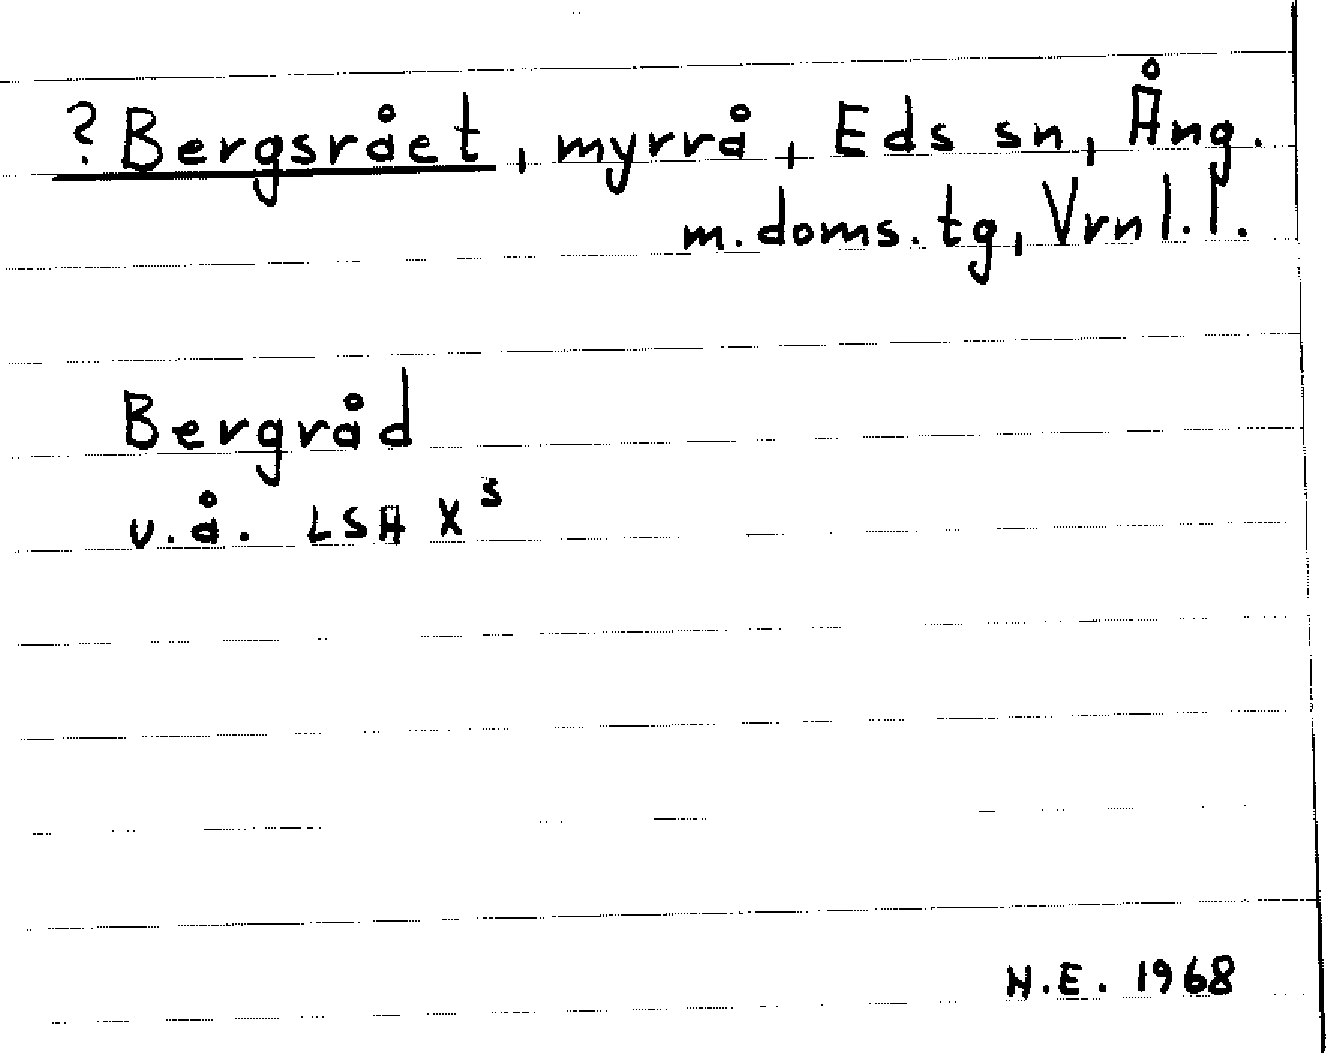 ?Bergsrået, myrrå, Eds sn, Ång.
m. doms. tg, Vrnl.l.
Bergråd
u.å. LSH X⁵
N.E. 1968